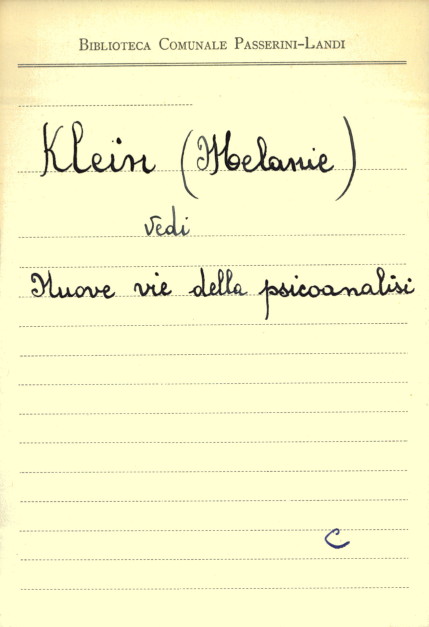 Biblioteca Comunale Passerini-Landi
Klein (Melanie)
vedi
Nuove vie della psicoanalisi
C